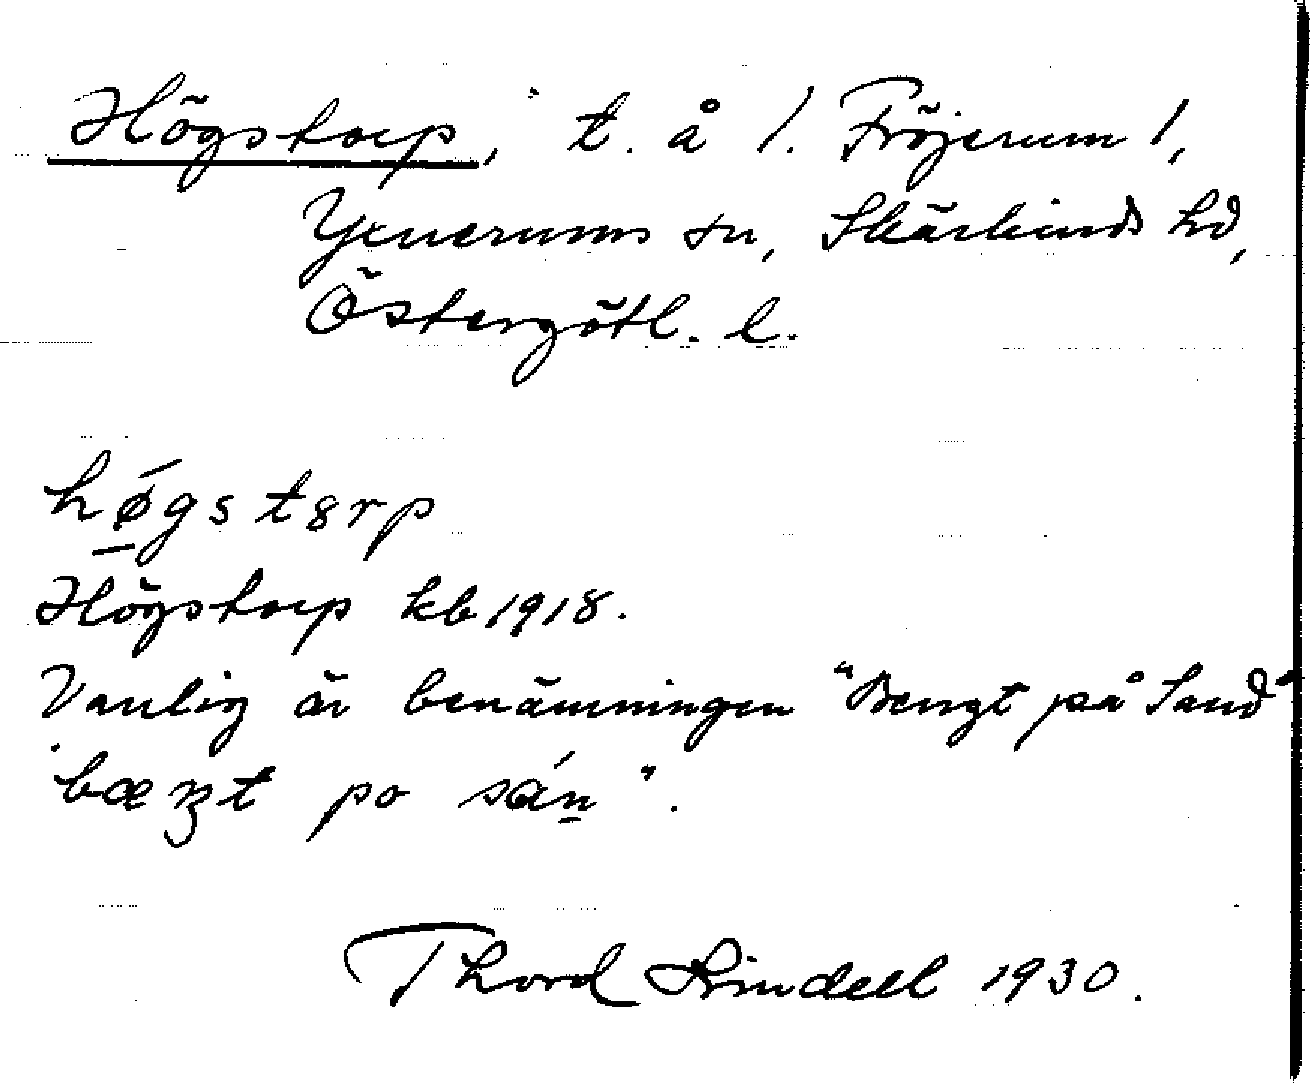 Högstorp, t. å 1. Fröjerum 1,
Yxnerums sn, Skärkinds hd,
Östergötl. l.
hǿgstɷrp
Högstorp kb 1918.
Vanlig är benämningen "Bengt på Sand"
"bæŋt po sán̲".
Thord Lindell 1930.